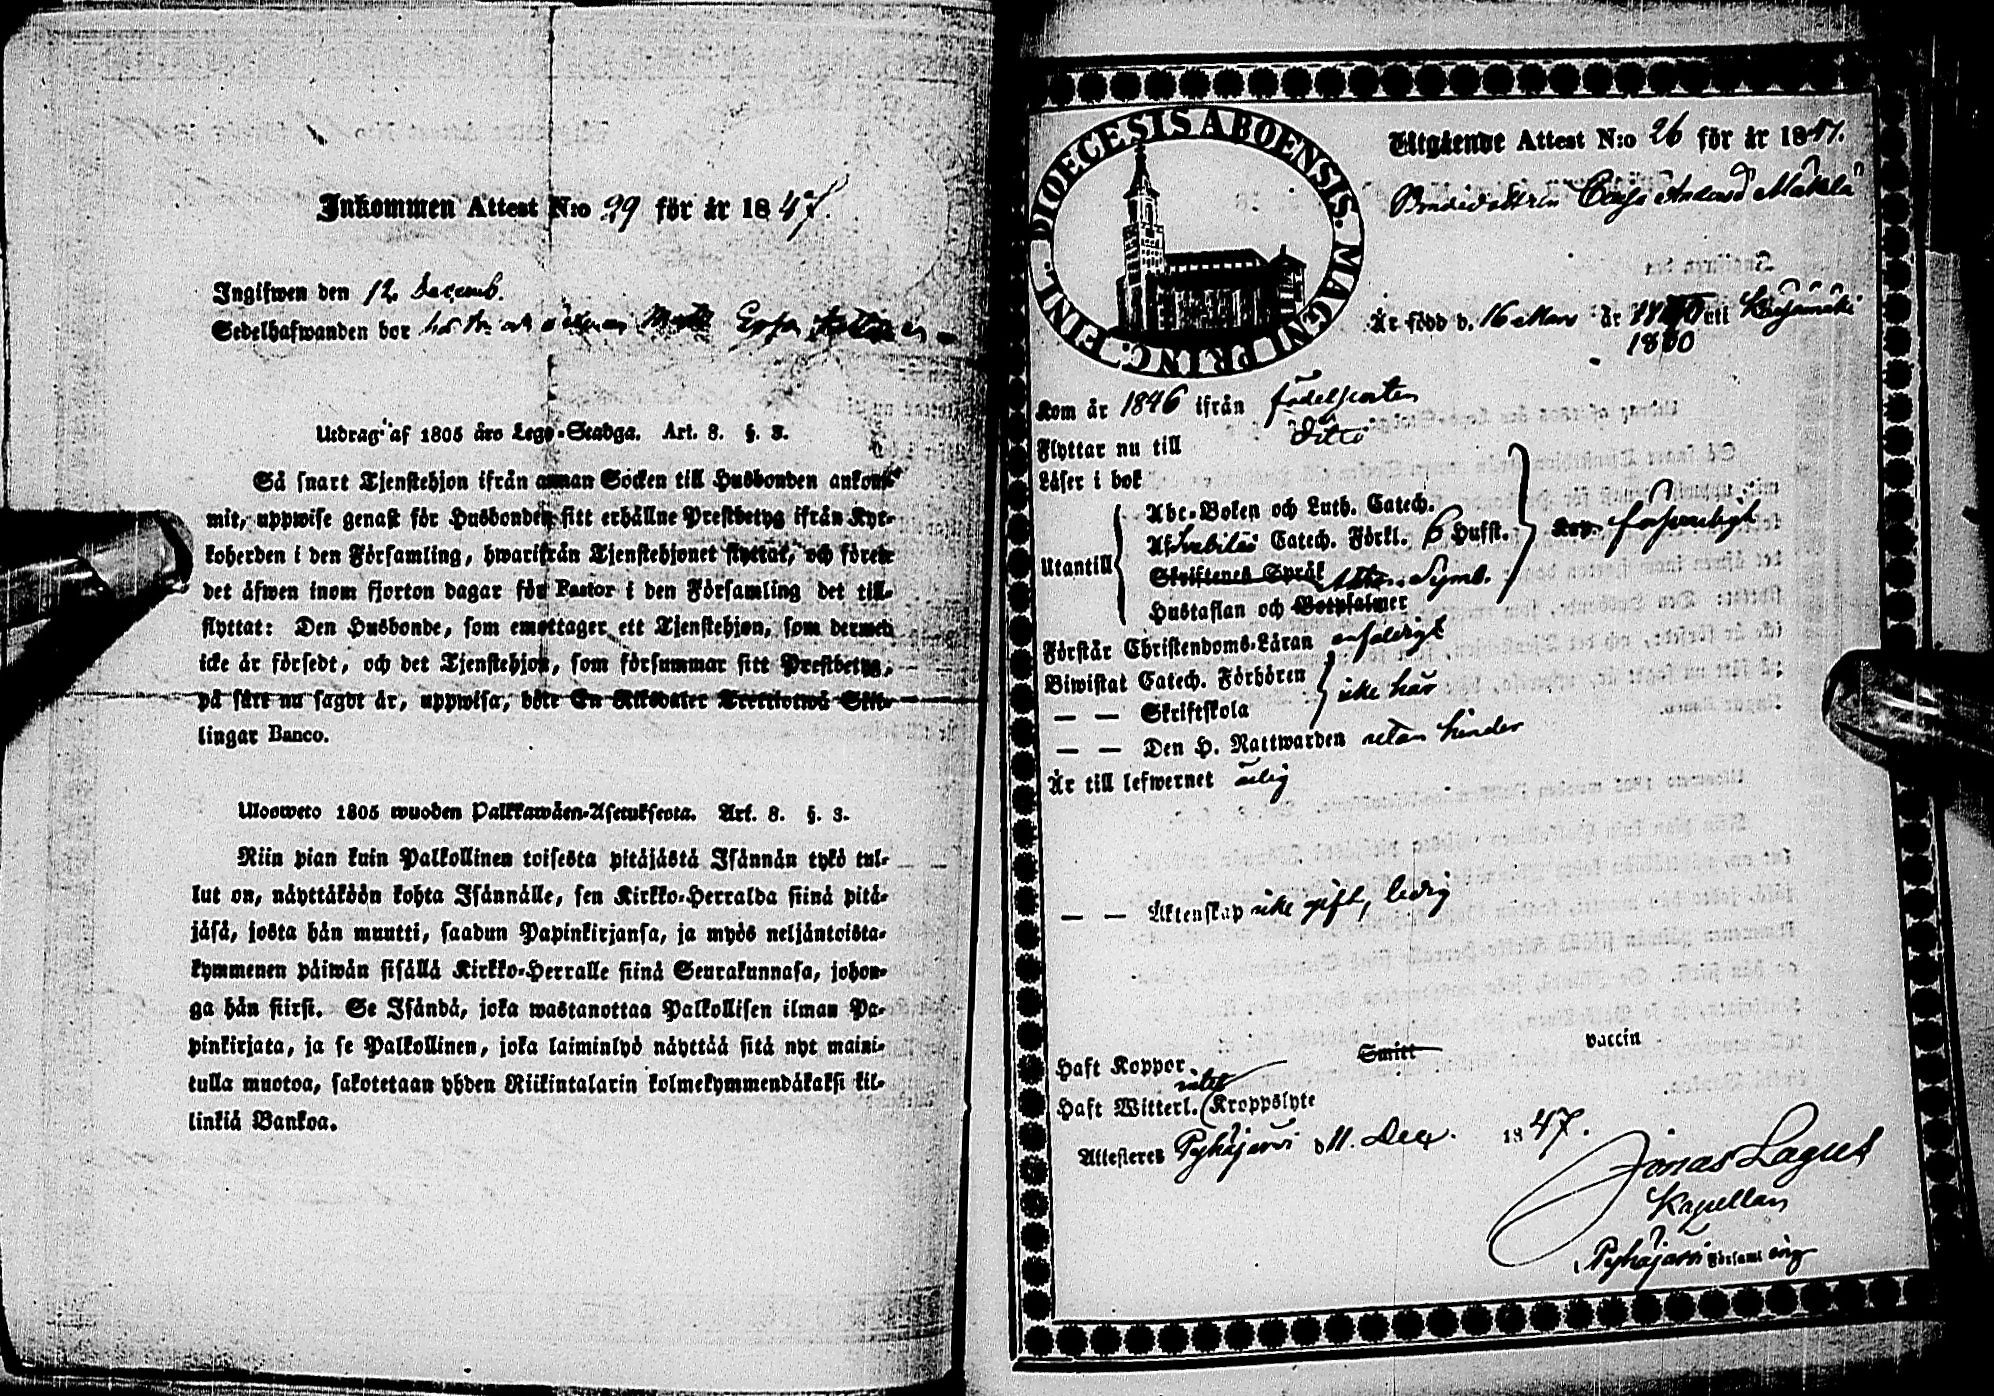 Inkommen Attest N:o 29 för år 1847.
Ingifwen den 12 Decemb.
Sedelhafwanden bor hos
Utdrag af 1805 års Lego-Stadga. Art. 8. §. 3.
Så snart Tjenstehjon ifrån annan Socken till Husbonden ankom-
mit, uppwise genast för Husbonden sitt erhållne Prestbetyg ifrån Kyr-
koherden i den Församling, hwarifrån Tjenstehjonet flyttat, och förete
det äfwen inom fjorton dagar för Pastor i den Församling det till-
flyttat: Den Husbonde, som emottager ett Tjenstehjon, som dermed
icke är försedt, och det Tjenstehjon, som försummar sitt Prestbetyg,
på sätt nu sagdt är, uppwisa, böte En Riksdaler Trettiotwå Skil-
lingar Banco.
Ulosweto 1805 wuoden Palkkawäen-Asetuksesta. Art. 8. §. 3.
Niin pian kuin Palkollinen toisesta pitäjästä Isännän tykö tul-
lut on, näyttäköön kohta Isännälle, sen Kirkko-Herralda siinä pitä-
jäsä, josta hän muutti, saadun Papinkirjansa, ja myös neljäntoista-
kymmenen päiwän sisällä Kirkko-Herralle siinä Seurakunnasa, johon-
ga hän siirsi. Se Isändä, joka wastanottaa Palkollisen ilman Pa-
pinkirjata, ja se Palkollinen, joka laiminlyö näyttää sitä nyt maini-
tulla muotoa, sakotetaan yhden Riikintalarin kolmekymmendäkaksi kil-
linkiä Bankoa.
DIOECESIS ABOENSIS. MAGNI PRINC. FINL.
Utgående Attest N:o 26 för år 1847.
Bondedottren Anders d Mäkelä
Är född d. 16 Mars år till Kärsämäki
1800
Kom år 1846 ifrån födelseorten
Flyttar nu till ditto
Läser i bok
Utantill
Abc-Boken och Luth. Catech.
Af Svebilii Catech. Förkl. 6 Hufst.
Skriftenes Språk Atha. Symb.
Hustaflan och Botpsalmer
försvarligt
Förstår Christendoms-Läran enfaldigt
Biwistat Catech. Förhören
— — Skriftskola
icke här
— — Den H. Nattwarden utan hinder
Är till lefwernet ärlig
— — Äktenskap icke gift, ledig
Haft Koppor. Smitt vaccin
Haft Witterl. intet Kroppslyte
Attesteres Pyhäjärvi d 11. Dec. 1847.
Jonas Lagus
Kapellan
i Pyhäjärvi Församling